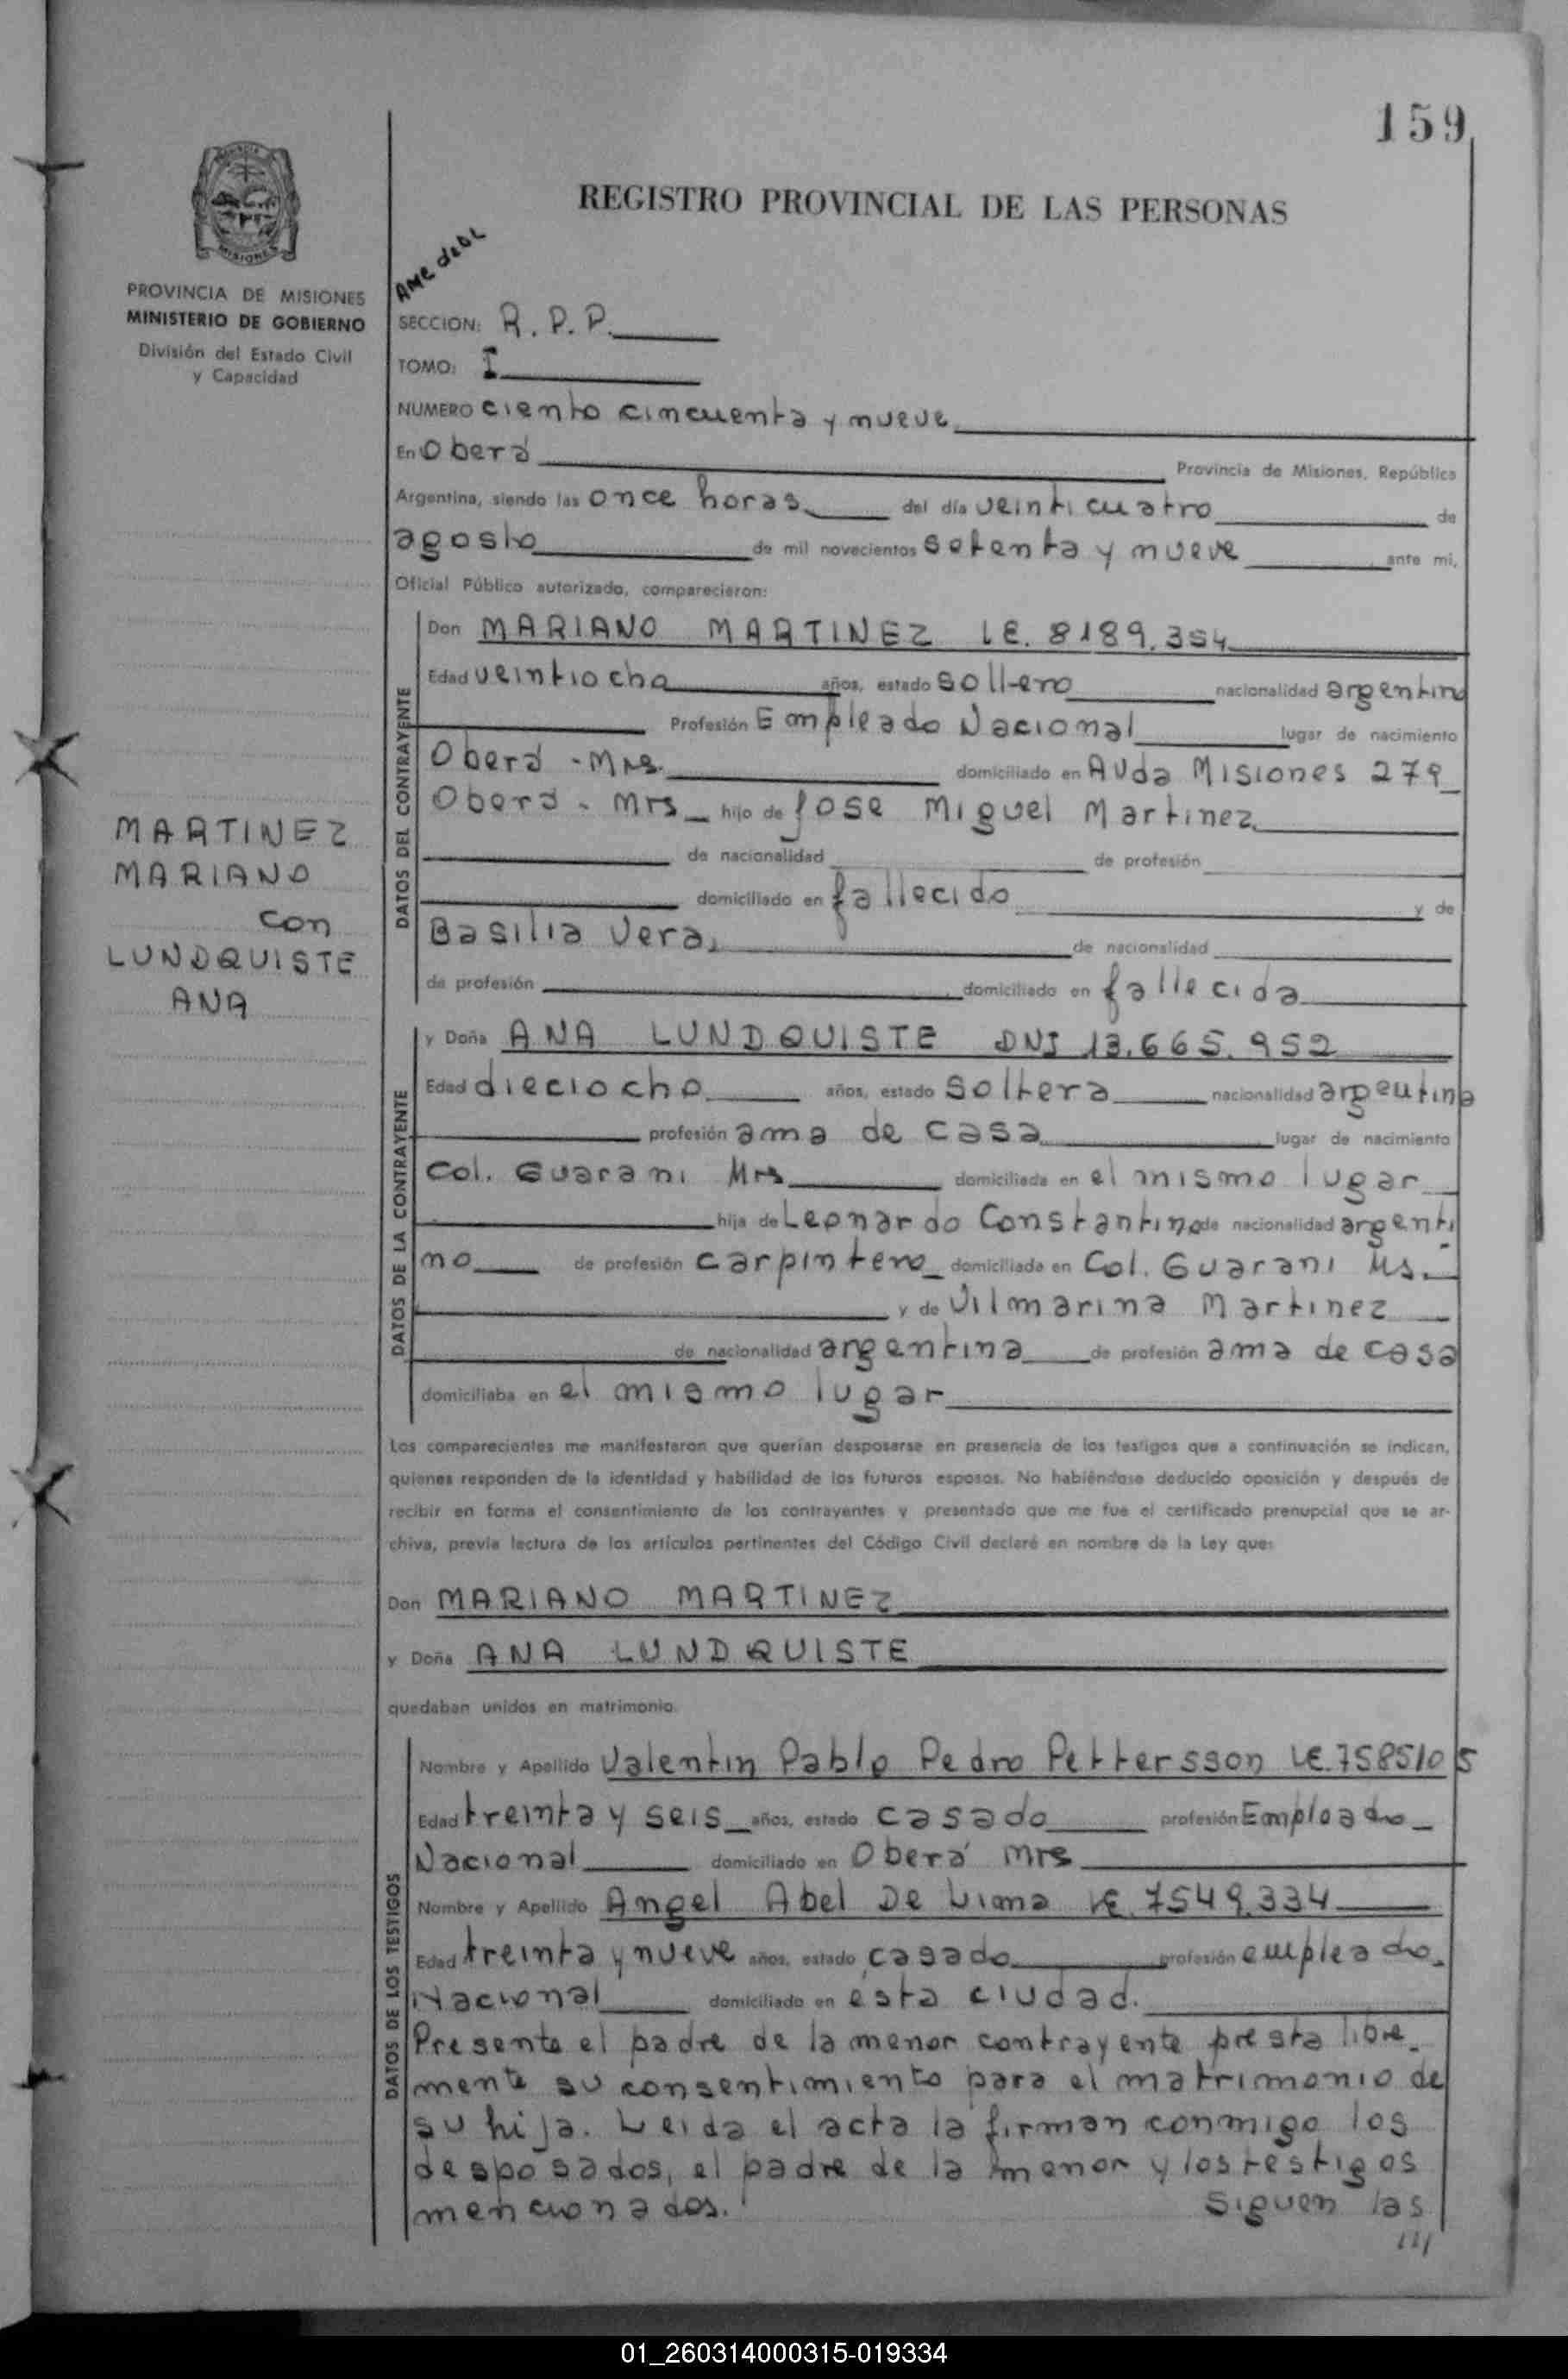 159
REGISTRO PROVINCIAL DE LAS PERSONAS
MISIONES
PROVINCIA DE MISIONES
MINISTERIO DE GOBIERNO
División del Estado Civil
y Capacidad
SECCION: R.P.P.
TOMO: I
NUMERO ciento cincuenta y nueve
En Oberá Provincia de Misiones, República
Argentina, siendo las once horas, del día veinticuatro de
agosto de mil novecientos setenta y nueve ante mi,
Oficial Público autorizado, comparecieron:
MARTINEZ
MARIANO
con
LUNDQUISTE
ANA
DATOS DEL CONTRAYENTE
Don MARIANO MARTINEZ LE. 8189.354
Edad veintiocho años, estado soltero nacionalidad argentino
Profesión Empleado Nacional lugar de nacimiento
Oberá - Mns. domiciliado en Avda Misiones 279
Oberá - Mns hijo de Jose Miguel Martinez
de nacionalidad de profesión
domiciliado en fallecido y de
Basilia Vera, de nacionalidad
de profesión domiciliado en fallecida
DATOS DE LA CONTRAYENTE
y Doña ANA LUNDQUISTE DNI 13.665.952
Edad dieciocho años, estado soltera nacionalidad argentina
profesión ama de casa lugar de nacimiento
Col. Guarani Mns domiciliada en el mismo lugar
hija de Leonardo Constantino de nacionalidad argenti
no de profesión carpintero domiciliado en Col. Guarani Ms.
y de Vilmarina Martinez
de nacionalidad argentina de profesión ama de casa
domiciliaba en el mismo lugar
Los comparecientes me manifestaron que querían desposarse en presencia de los testigos que a continuación se indican,
quienes responden de la identidad y habilidad de los futuros esposos. No habiéndose deducido oposición y después de
recibir en forma el consentimiento de los contrayentes y presentado que me fue el certificado prenupcial que se ar-
chiva, previa lectura de los artículos pertinentes del Código Civil declaré en nombre de la Ley que:
Don MARIANO MARTINEZ
y Doña ANA LUNDQUISTE
quedaban unidos en matrimonio.
DATOS DE LOS TESTIGOS
Nombre y Apellido Valentin Pablo Pedro Pettersson LE.7585105
Edad treinta y seis años, estado casado profesión Empleado
Nacional domiciliado en Oberá Mns
Nombre y Apellido Angel Abel De Lima LE 7549.334
Edad treinta y nueve años, estado casado profesión empleado
Nacional domiciliado en esta ciudad.
Presente el padre de la menor contrayente presta libre-
mente su consentimiento para el matrimonio de
su hija. Leida el acta la firman conmigo los
desposados, el padre de la menor y los testigos
mencionados. Siguen las
///
01_260314000315-019334